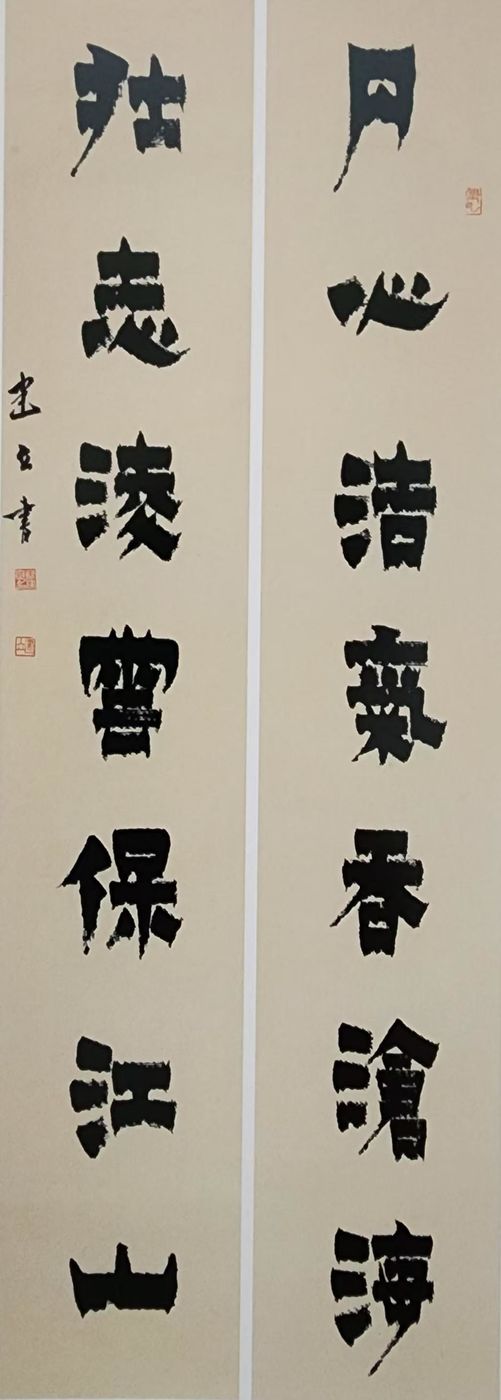 丹心洁氣香滄海
壯志淩雲保江山
建 書